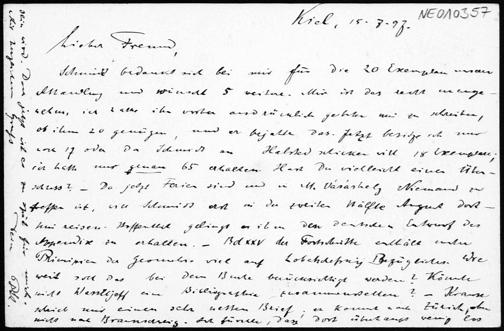 NE010357
Kiel, 15.7.97.
Lieber Freund,
Schmidt bedankt sich bei mir für die 20 Exemplare unserer
Abhandlung und wünscht 5 weitere. Mir ist das recht unange-
nehm, ich hatte ihn vorher ausdrücklich gebeten mir zu schreiben,
ob ihm 20 genügen, und er bejahte das. Jetzt besitze ich nur
noch 19 oder da Schmidt an Halsted schicken will 18 Exemplare;
ich hatte nur genau 65 erhalten. Hast Du vielleicht einen Über-
schuss? – Da jetzt Ferien sind und in M. Vásárhely Niemand zu
treffen ist, will Schmidt erst in der zweiten Hälfte August dort-
hin reisen. Hoffentlich gelingt es ihm den deutschen Entwurf des
Appendix zu erhalten. – Bd XXV der Fortschritte enthält unter
Principien der Geometrie viel auf Lobatschefskij Bezügliches. Wie
weit soll das bei dem Buche berücksichtigt werden? Könnte
nicht Wassiljeff eine Bibliographie zusammenstellen? – Krause
schrieb mir einen sehr netten Brief, er kommt nach Zürich,
nicht nach Braunschweig. Ich fürchte, dass dort überhaupt wenig